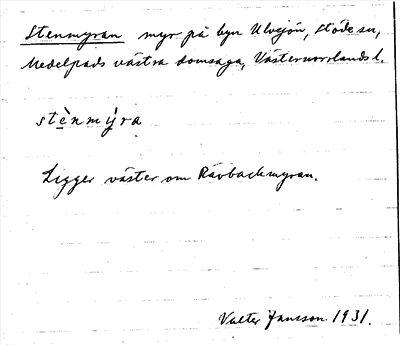 Stenmyran myr på byn Ulvsjön, Stöde sn,
Medelpads västra domsaga, Västernorrlands l.
stènmýra
Ligger väster om Rävbackmyran.
Valter Jansson 1931.